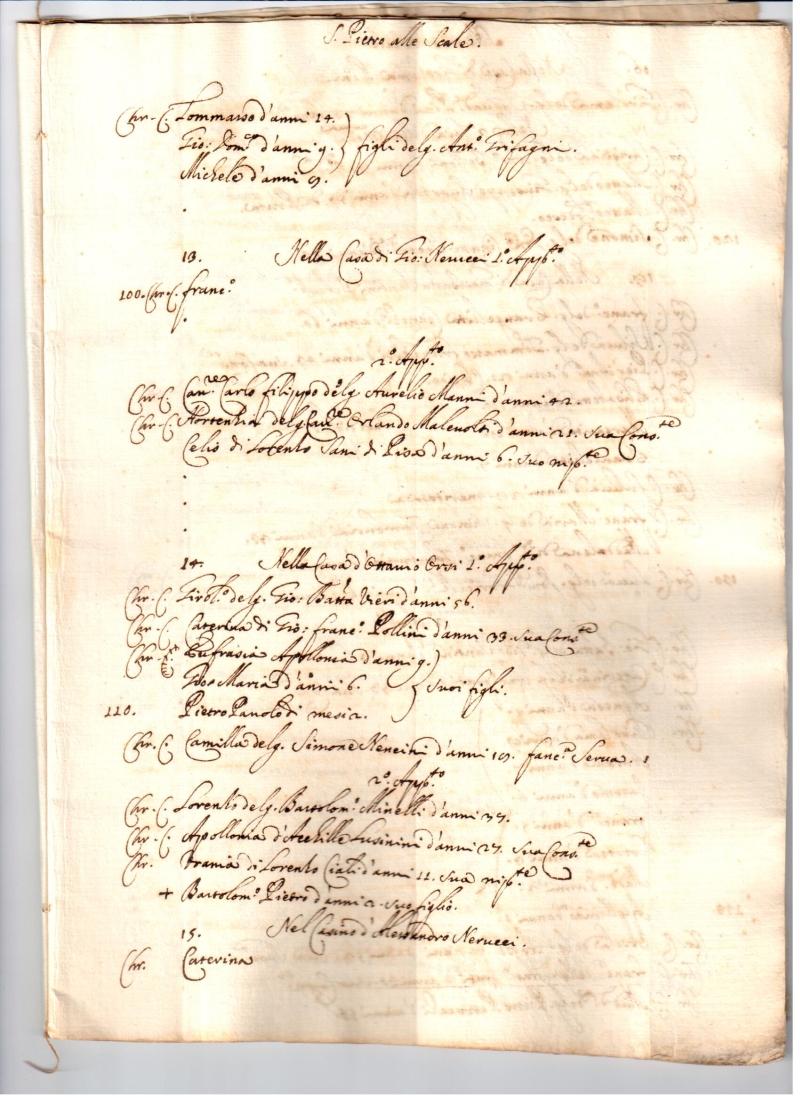 S. Pietro alle Scale.
Chr. C. Tommaso d'anni 14.
Gio: Dom.co d'anni 9. } figli del q. Ant.o Grifagni.
Michele d'anni 9.
13. Nella Casa di Gio: Nerucci 1.o App.to
100. Chr. C. Franc.o
2.o App.to
Chr. C. Cav.re Carlo Filippo del q. Aurelio Manni d'anni 42.
Chr. C. Hortentia del q. Cav.re Orlando Malevolti d'anni 21. sua Cons.te
Celio di Lorenzo Sani di Pisa d'anni 6. suo nip.te
14. Nella Casa d'Ottavio Orsi 1.o App.to
Chr. C. Girol.o del q. Gio: Batta Vieri d'anni 56.
Chr. C. Caterina di Gio: Franc.o Pollini d'anni 33. sua Cons.te
Chr. Eufrasia Apollonia d'anni 9.
Maria d'anni 6. } suoi figli.
110. Pietro Pauolo di mesi 2.
Chr. C. Camilla del q. Simone Nencini d'anni 19. fanc.a Serva. 1
2.o App.to
Chr. C. Lorenzo del q. Bartolom.o Minelli d'anni 37.
Chr. C. Apollonia d'Achille Lusinini d'anni 27. sua Cons.te
Chr. di Lorenzo Ciali d'anni 11. sua nip.te
+ Bartolom.o Pietro d'anni 2. suo figlio.
15. Nel Casino d'Alessandro Nerucci.
Chr. Caterina